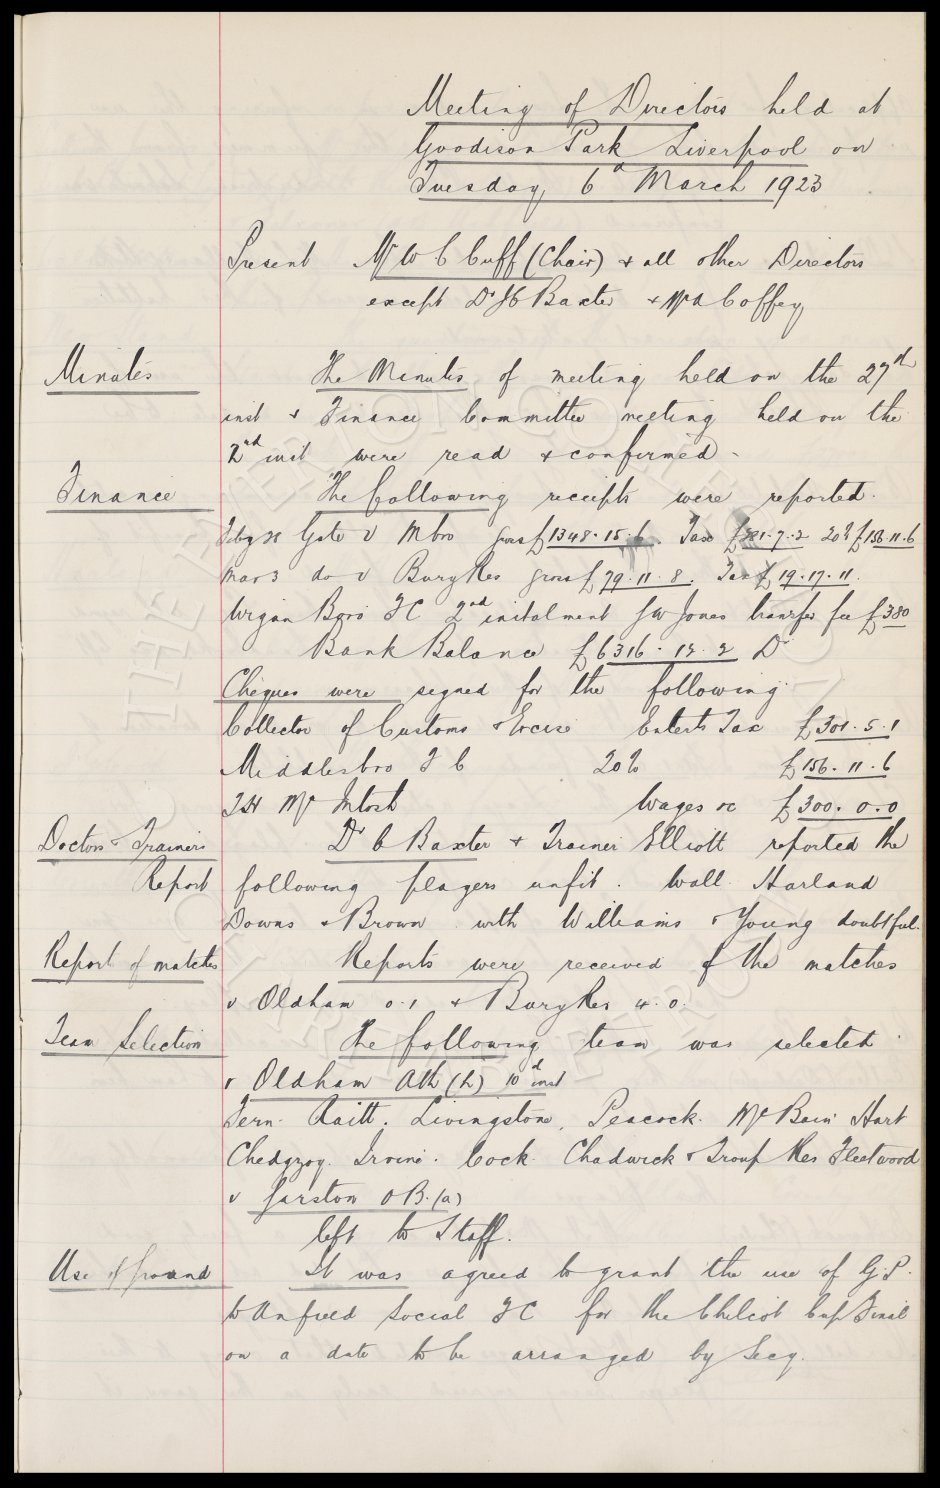 Meeting of Directors held at
Goodison Park Liverpool on
Tuesday 6th March 1923
Present Mr W C Cuff (Chair) & all other Directors
except Dr J C Baxter & Mr A Coffey
Minutes
The Minutes of meeting held on the 27th
inst & Finance Committee meeting held on the
2nd inst were read & confirmed -
Finance
The following receipts were reported.
Gate v Mbro gross £1348.15.6. Tax £281.7.2 20% £156.11.6
Mar 3 do v Bury Res gross £79.11.8. Tax £19.17.11.
Wigan Boro FC 2nd instalment J W Jones transfer fee £380
Bank Balance £6316.12.2 Dr
Cheques were signed for the following
Collector of Customs & Excise Enterts Tax £301.5.1
Middlesbro F C 20% £156.11.6
T H McIntosh Wages &c £300.0.0
Doctors & Trainers
Report
Dr C Baxter & Trainer Elliott reported the
following players unfit. Wall Harland
Downs & Brown with Williams & Young doubtful.
Report of matches
Reports were received of the matches
v Oldham 0.1 & Bury Res 4.0.
Team Selection
The following team was selected
v Oldham Ath (h) 10th inst
Fern. Raitt. Livingstone, Peacock. McBain Hart
Chedgzoy. Irvine. Cock. Chadwick & Troup Res Fleetwood
v Garston O B. (a)
left to Staff.
Use of Ground
It was agreed to grant the use of G.P.
to Anfield Social FC for the Cup Final
on a date to be arranged by Secy.
THE EVERTON FOOTBALL